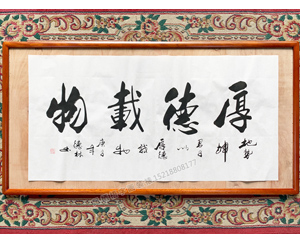 厚德載物
地势坤君子以厚德载物
庚子年德林书
15218808177